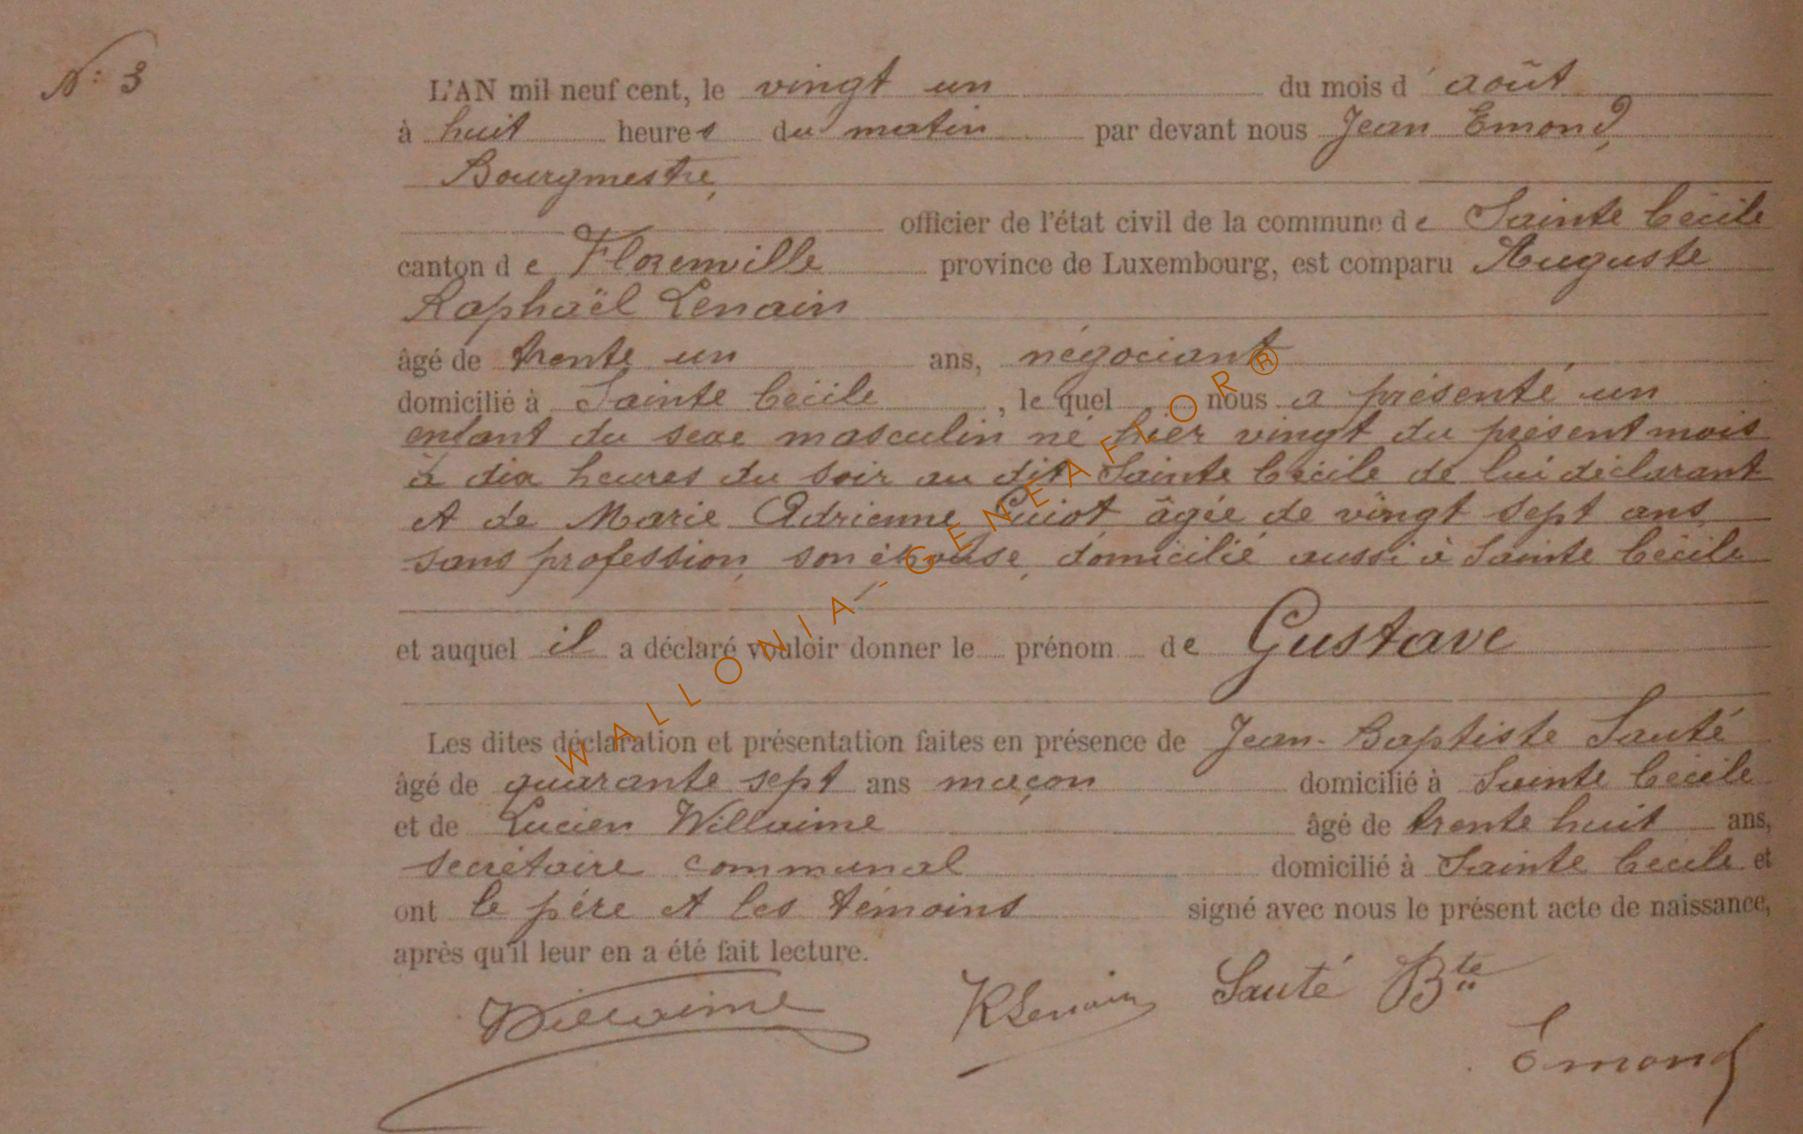 N: 3
L'AN mil neuf cent, le vingt un du mois d' août
à huit heures du matin par devant nous Jean Emond,
Bourgmestre,
officier de l'état civil de la commune de Sainte Cécile
canton de Florenville province de Luxembourg, est comparu Auguste
Raphaël Lenain
âgé de trente un ans, négociant
domicilié à Sainte Cécile, lequel nous a présenté un
enfant du sexe masculin né hier vingt du présent mois
à dix heures du soir au dit Sainte Cécile de lui déclarant
et de Marie Adrienne Guiot âgée de vingt sept ans
sans profession, son épouse, domicilié aussi à Sainte Cécile
et auquel il a déclaré vouloir donner le prénom de Gustave
Les dites déclaration et présentation faites en présence de Jean-Baptiste Sauté
âgé de quarante sept ans maçon domicilié à Sainte Cécile
et de Lucien Willaime âgé de trente huit ans,
secrétaire communal domicilié à Sainte Cécile et
ont le père et les témoins signé avec nous le présent acte de naissance,
après qu'il leur en a été fait lecture.
Willaime RLenain Sauté Bte
Emond
WALLONIA-GENEAFLOR®